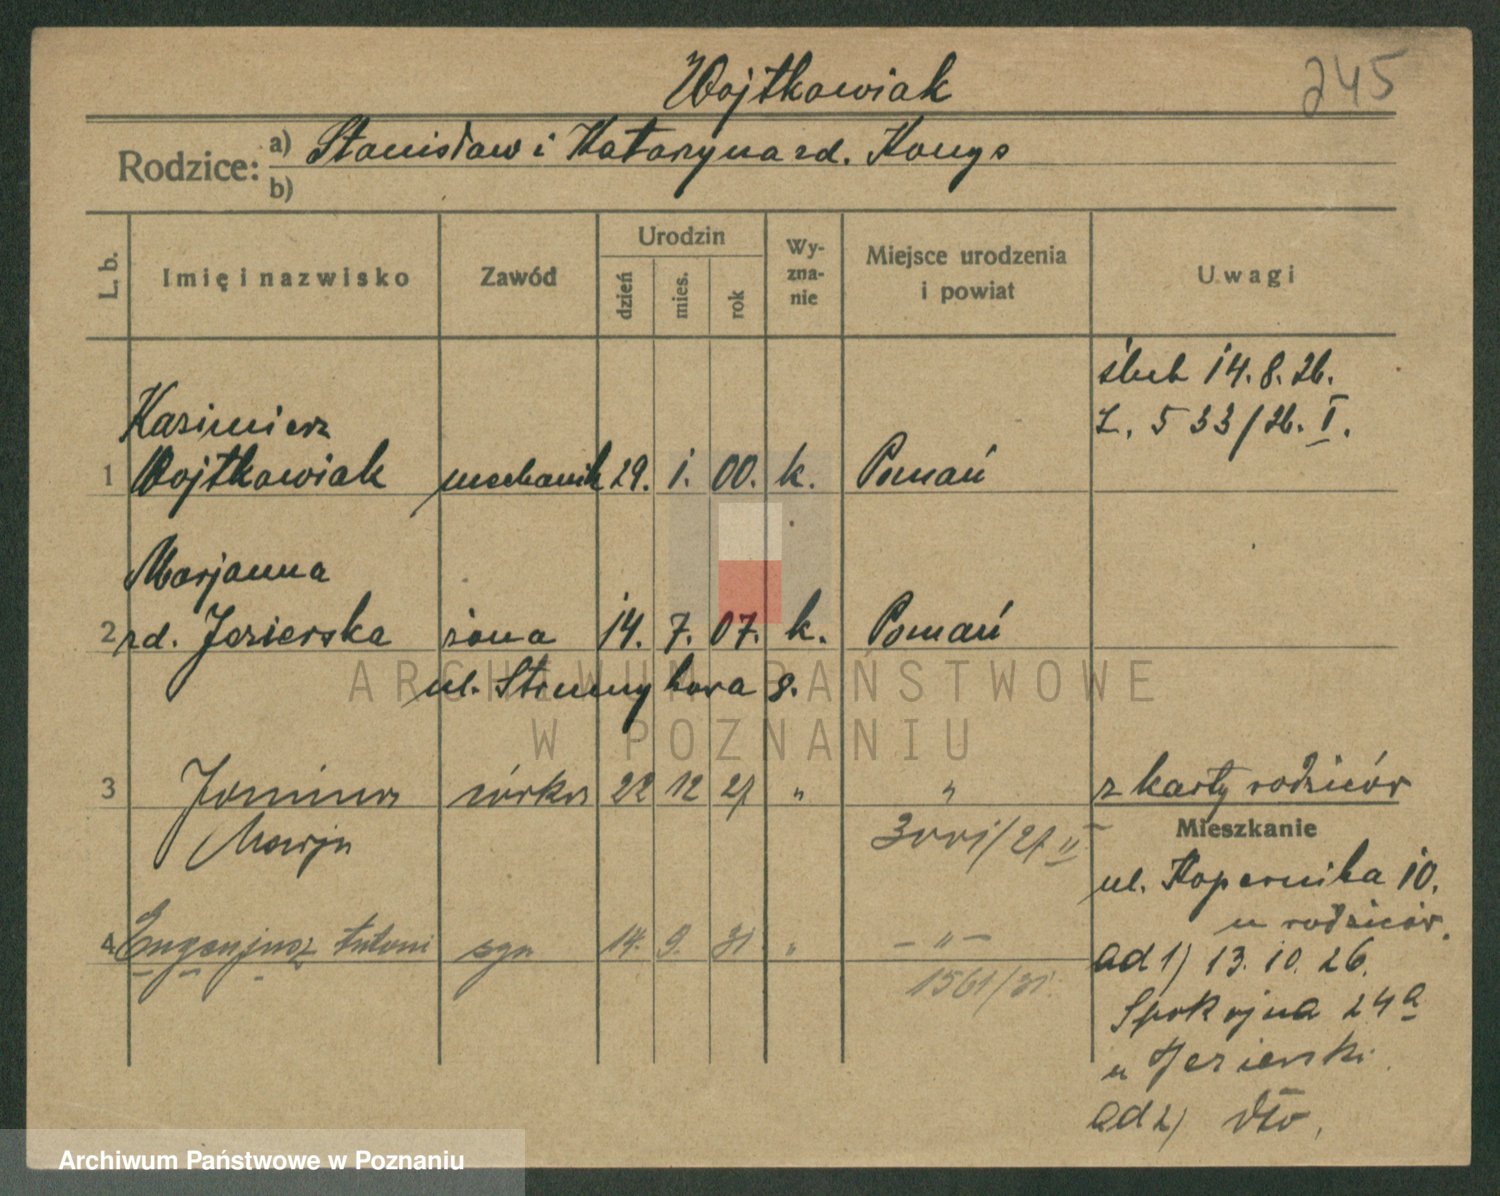 Wojtkowiak
245
Rodzice: a) Stanisław i Katarzyna zd. Konys
b)
L. b. Imię i nazwisko Zawód Urodzin dzień mies. rok Wy-zna-nie Miejsce urodzenia i powiat Uwagi
ślub 14.8.26.
L. 533/26. I.
Kazimierz
1 Wojtkowiak mechanik 29. 1. 00. k. Poznań
Marjanna
2 zd. Jezierska żona 14. 7. 07. k. Poznań
ul. Strumykowa 8.
ARCHIWUM PAŃSTWOWE
W POZNANIU
3 Janina córka 22 12 27 " " z karty rodziców
Marja /27 II
Mieszkanie
ul. Kopernika 10.
u rodziców.
4 Eugenjusz Antoni syn 14. 9. 31 " - " -
1561/31.
ad 1) 13.10.26.
Spokojna 24a
u Jezierski.
ad 2) dto.
Archiwum Państwowe w Poznaniu